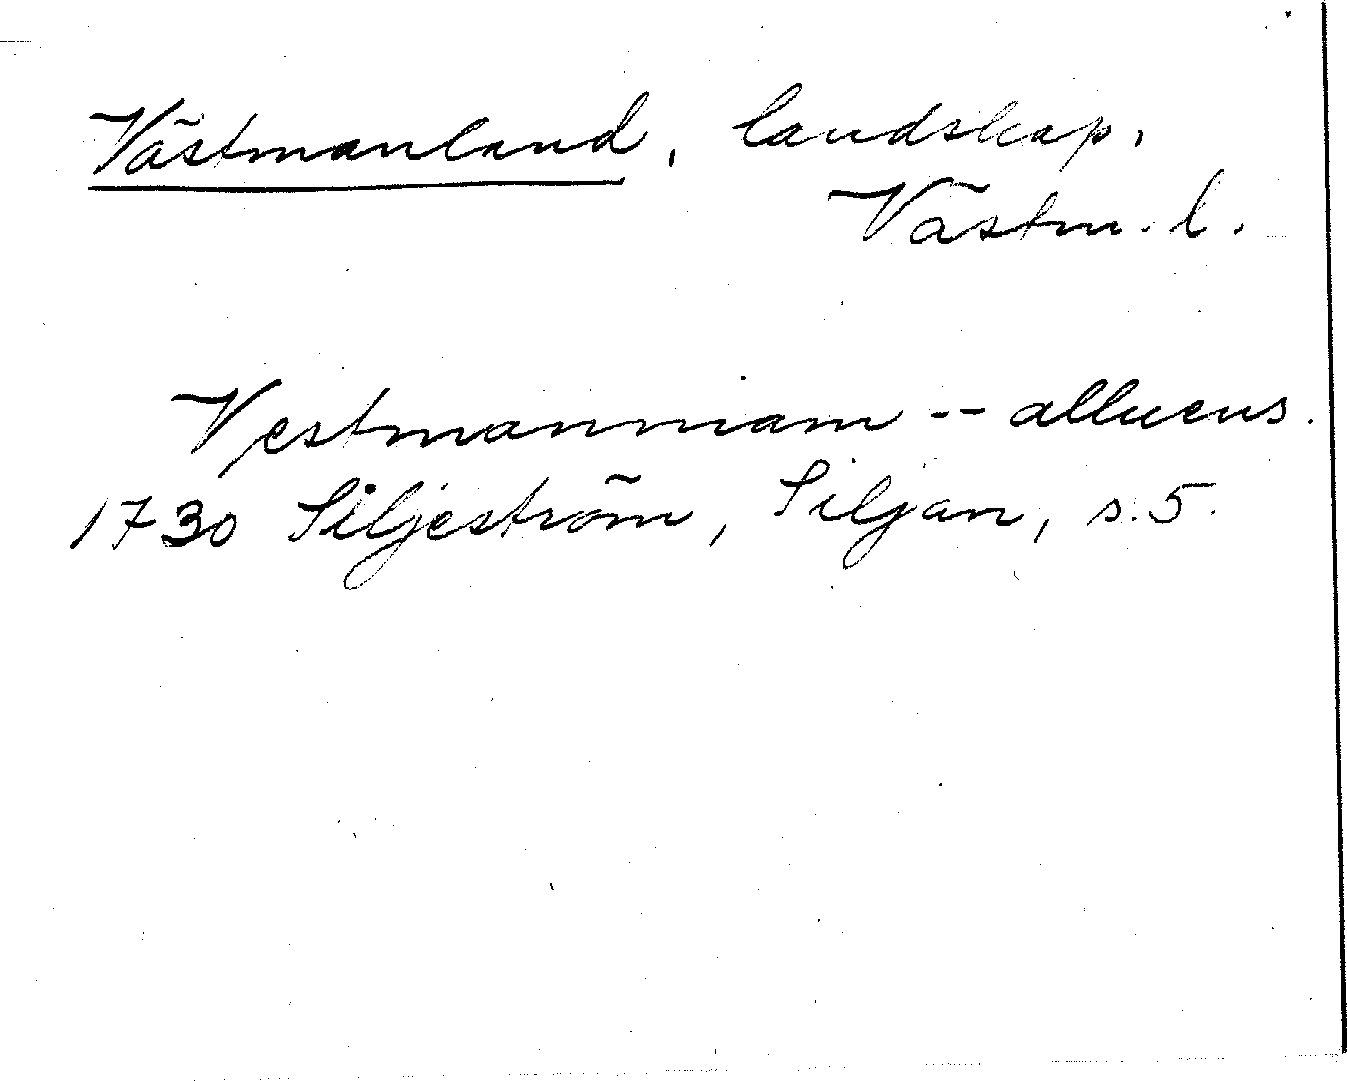 Västmanland, landskap.
Västm. l.
Vestmanniam -- alluens.
1730 Siljeström, Siljan, s. 5.